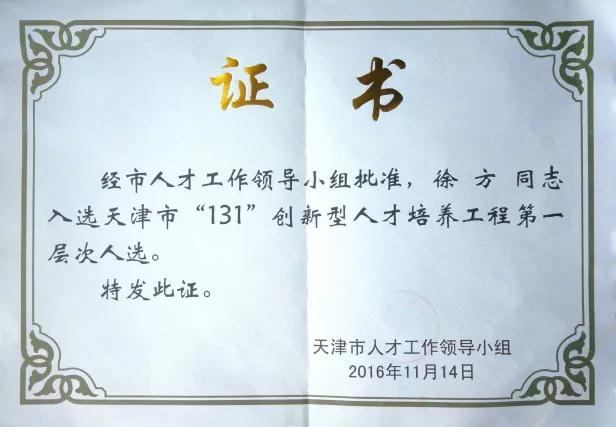 证 书
经市人才工作领导小组批准，徐 方 同志
入选天津市“131”创新型人才培养工程第一
层次人选。
特发此证。
天津市人才工作领导小组
2016年11月14日